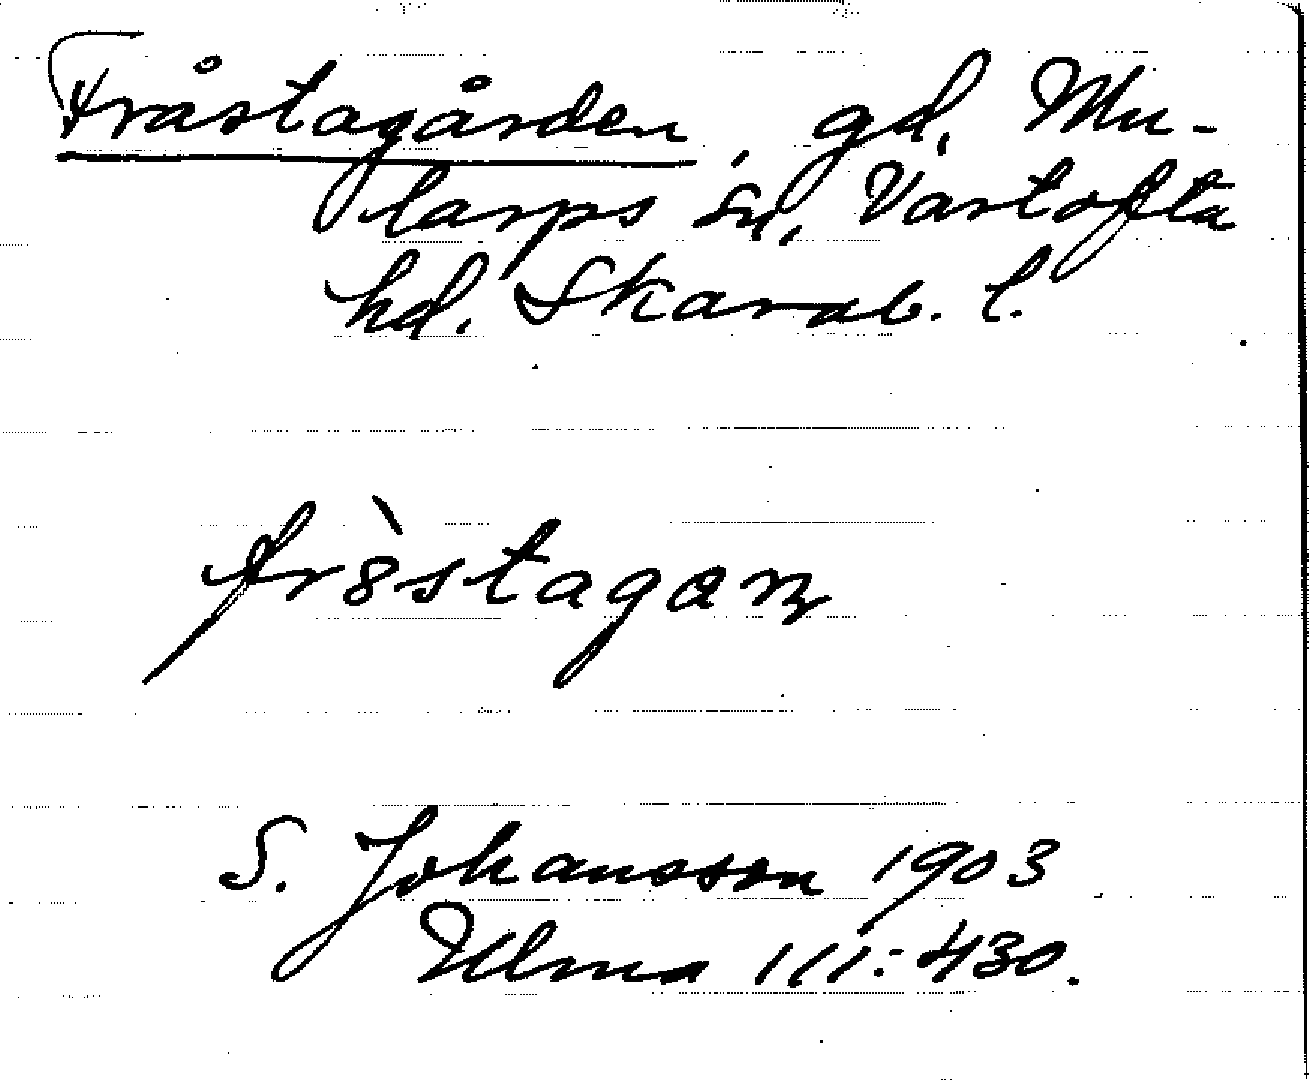 Fråstagården, gd, Mu-
larps sn, Vartofta
hd. Skarab. l.
fròstagaɲ
S. Johansson 1903
Ulma 111:430.